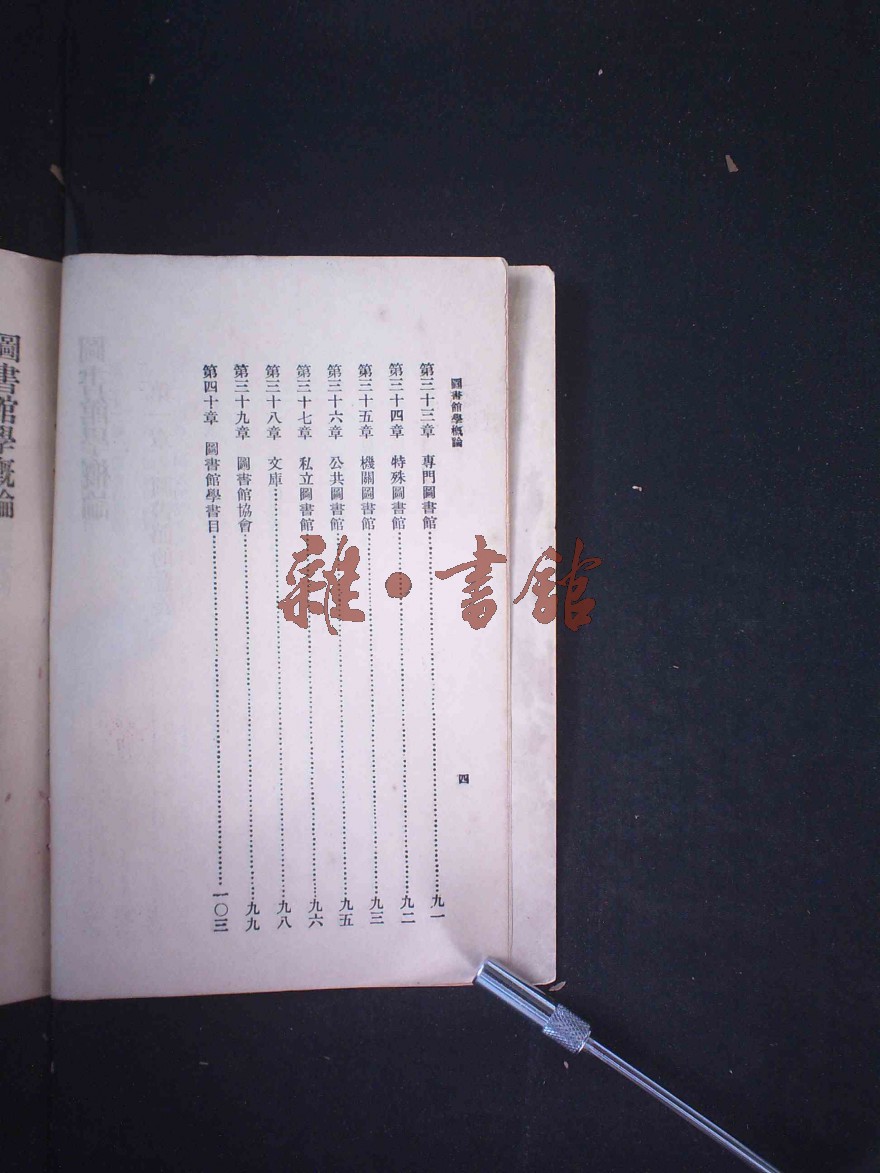 圖書館學概論
四
第三十三章 專門圖書館……………………九一
第三十四章 特殊圖書館……………………九二
第三十五章 機關圖書館……………………九三
第三十六章 公共圖書館……………………九五
第三十七章 私立圖書館……………………九六
第三十八章 文庫……………………九八
第三十九章 圖書館協會……………………九九
第四十章 圖書館學書目……………………一〇三
圖書館學概論
雜·書館